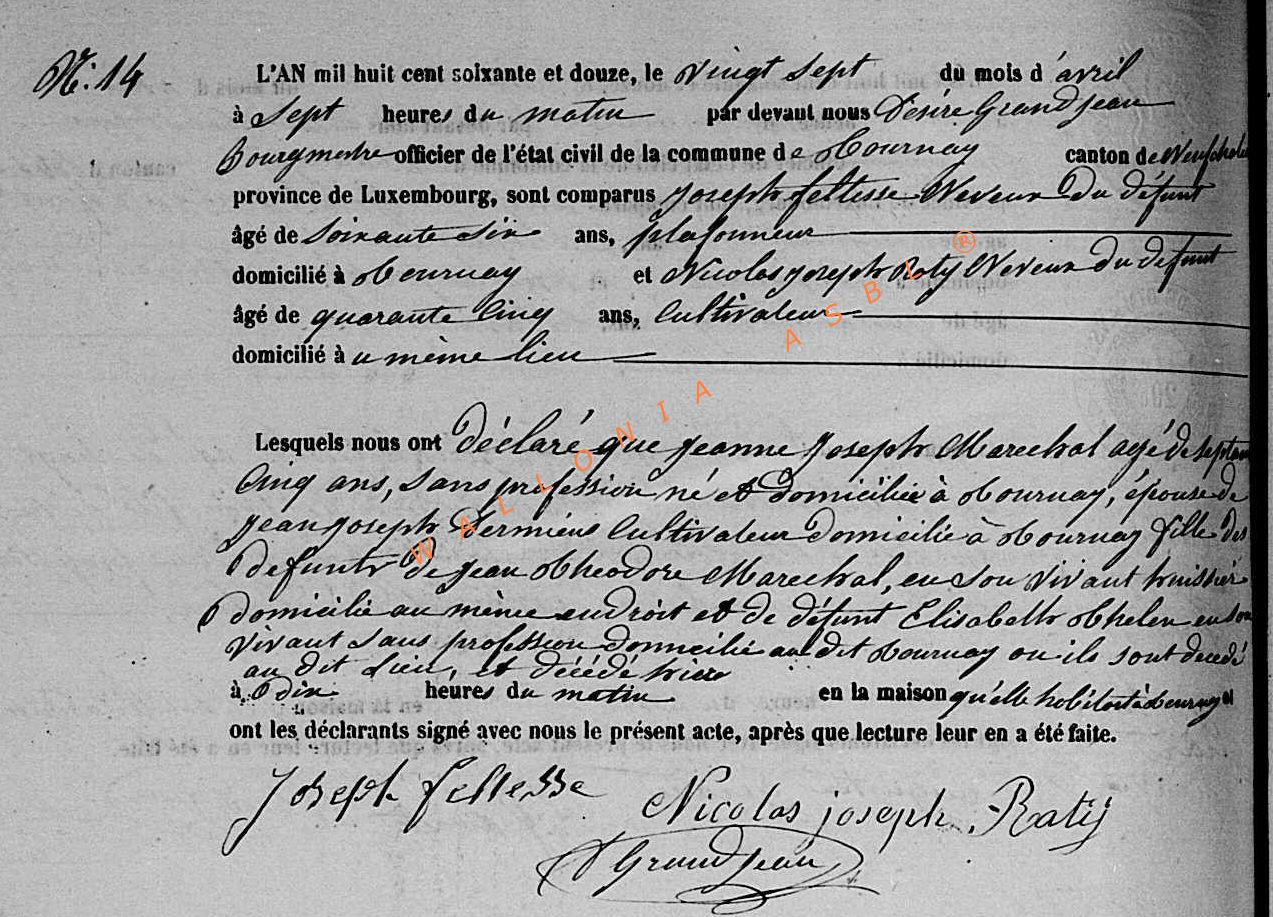 N: 14
L'AN mil huit cent soixante et douze, le vingt sept du mois d'avril
à sept heures du matin par devant nous Désiré Grandjean
Bourgmestre officier de l'état civil de la commune de Tournay canton de Neufchate
province de Luxembourg, sont comparus Joseph feltesse Neveux Du défunt
âgé de Soixante Six ans, plafonneur
domicilié à Tournay et Nicolas joseph Raty Neveux du défunt
âgé de quarante Cinq ans, Cultivateur
domicilié à u même lieu
Lesquels nous ont Déclaré que jeanne Joseph Marechal agé de septante
Cinq ans, sans profession né et domiciliée à Tournay, épouse de
jean joseph Cultivateur domicilié à Tournay fille des
défunts De jean Theodore Marechal, en son vivant huissier
Domicilié au même endroit et de défunt Elisabeth Thelen en son
vivant sans profession domicilié au dit Tournay ou ils sont decedé
au dit Lieu, et décédé hier
à Dix heures du matin en la maison qu'elle habitait à Tournay et
ont les déclarants signé avec nous le présent acte, après que lecture leur en a été faite.
Joseph feltesse
Nicolas joseph Raty
D Grandjean
WALLONIA ASBL ®